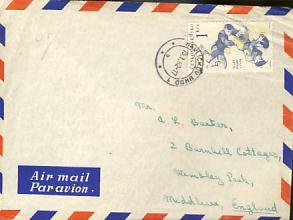 ČESKOSLOVENSKO
1 Kčs
HAVLÍČKŮV BROD 1
Mr.
A. L. Baxter,
2 Barnhill Cottages,
Wembley Park,
Middlesex,
England
Air mail
Par avion